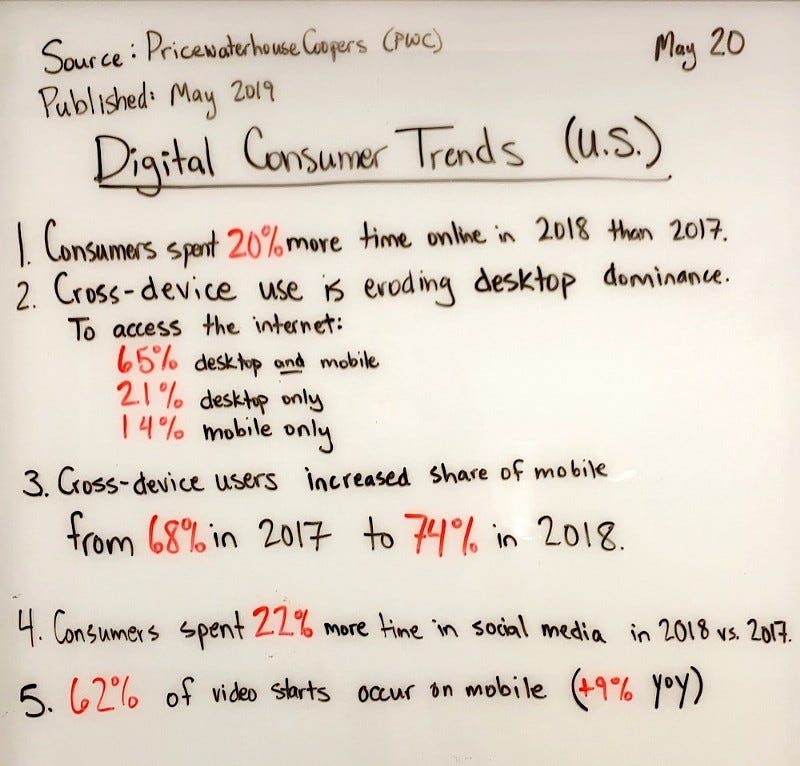 Source: PricewaterhouseCoopers (PWC)
May 20
Published: May 2019
Digital Consumer Trends (U.S.)
1. Consumers spent 20% more time online in 2018 than 2017.
2. Cross-device use is eroding desktop dominance.
To access the internet:
65% desktop and mobile
21% desktop only
14% mobile only
3. Cross-device users increased share of mobile
from 68% in 2017 to 74% in 2018.
4. Consumers spent 22% more time in social media in 2018 vs. 2017.
5. 62% of video starts occur on mobile (+9% YoY)